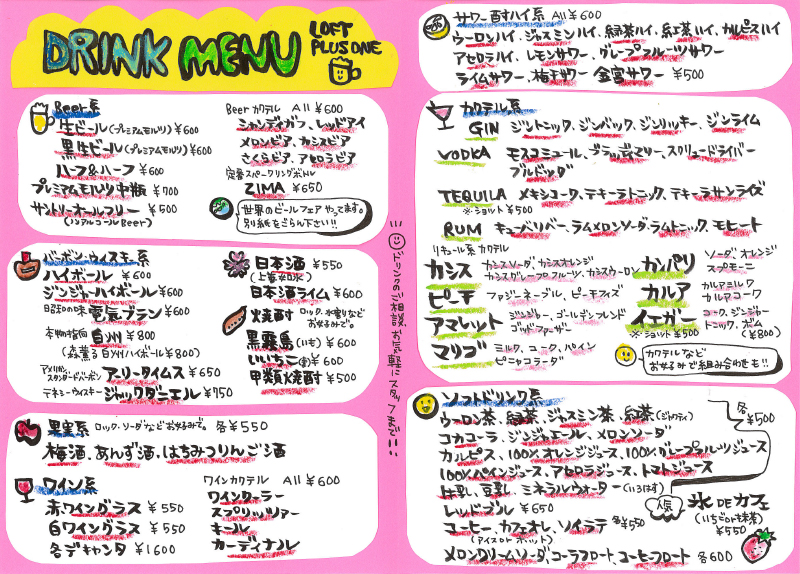 DRINK MENU
LOFT
PLUS ONE
Beer系
生ビール(プレミアムモルツ) ¥600
黒生ビール(プレミアムモルツ) ¥600
ハーフ&ハーフ ¥600
プレミアムモルツ中瓶 ¥700
サントリーオールフリー ¥500
(ノンアルコールBeer)
Beerカクテル All ¥600
シャンディガフ、レッドアイ
メロンビア、カシスビア
さくらビア、アセロラビア
定番スパークリングボトル
ZIMA ¥650
世界のビールフェアやってます。
別紙をごらん下さい!!
バーボン・ウィスキー系
ハイボール ¥600
ジンジャーハイボール ¥600
昭和の味 電気ブラン ¥600
本物指向 白州 ¥800
(森薫る白州ハイボール¥800)
アメリカンスタンダードバーボン アーリータイムス ¥650
テネシーウイスキー ジャックダニエル ¥750
日本酒 ¥550
(上善如水)
日本酒ライム ¥600
焼酎 ロック、水割りなどお好みで。
黒霧島(いも) ¥600
いいちこ(麦) ¥600
甲類焼酎 ¥500
果実系 ロック・ソーダなどお好みで。各¥550
梅酒、あんず酒、はちみつりんご酒
ワイン系
赤ワイングラス ¥550
白ワイングラス ¥550
各デキャンタ ¥1600
ワインカクテル All ¥600
ワインクーラー
スプリッツァー
キール
カーディナル
ドリンクのご相談、お気軽にスタッフまで!!
サワー酎ハイ系 All ¥600
ウーロンハイ、ジャスミンハイ、緑茶ハイ、紅茶ハイ、カルピスハイ
アセロラハイ、レモンサワー、グレープフルーツサワー
ライムサワー、梅干サワー 金宮サワー ¥500
カクテル系
GIN ジントニック、ジンバック、ジンリッキー、ジンライム
VODKA モスコミュール、ブラッディマリー、スクリュードライバー
ブルドッグ
TEQUILA メキシコーク、テキーラトニック、テキーラサンライズ
※ショット¥500
RUM キューバリバー、ラムメロンソーダ、ラムトニック、モヒート
リキュール系カクテル
カシス カシスソーダ、カシスオレンジ
カシスグレープフルーツ、カシスウーロン
ピーチ ファジーネーブル、ピーチフィズ
アマレット ジンジャー、ゴールデンフレンド
ゴッドファーザー
マリブ ミルク、コーク、パイン
ピニャコラーダ
カンパリ ソーダ、オレンジ
スプモーニ
カルア カルアミルク
カルアコーク
イエガー コーク、ジンジャー
※ショット¥500 トニック、ボム
(¥800)
カクテルなど
お好みで組み合わせも!!
ソフトドリンク系 各¥500
ウーロン茶、緑茶、ジャスミン茶、紅茶
コカコーラ、ジンジャエール、メロンソーダ
カルピス、100%オレンジジュース、100%グレープフルーツジュース
100%パインジュース、アセロラジュース、トマトジュース
牛乳、豆乳、ミネラルウォーター(いろはす)
レッドブル ¥650
コーヒー、カフェオレ、ソイラテ 各¥550
(アイス or ホット)
メロンクリームソーダ、コーラフロート、コーヒーフロート 各600
人気
氷 DE カフェ
(いちご or 抹茶)
¥550